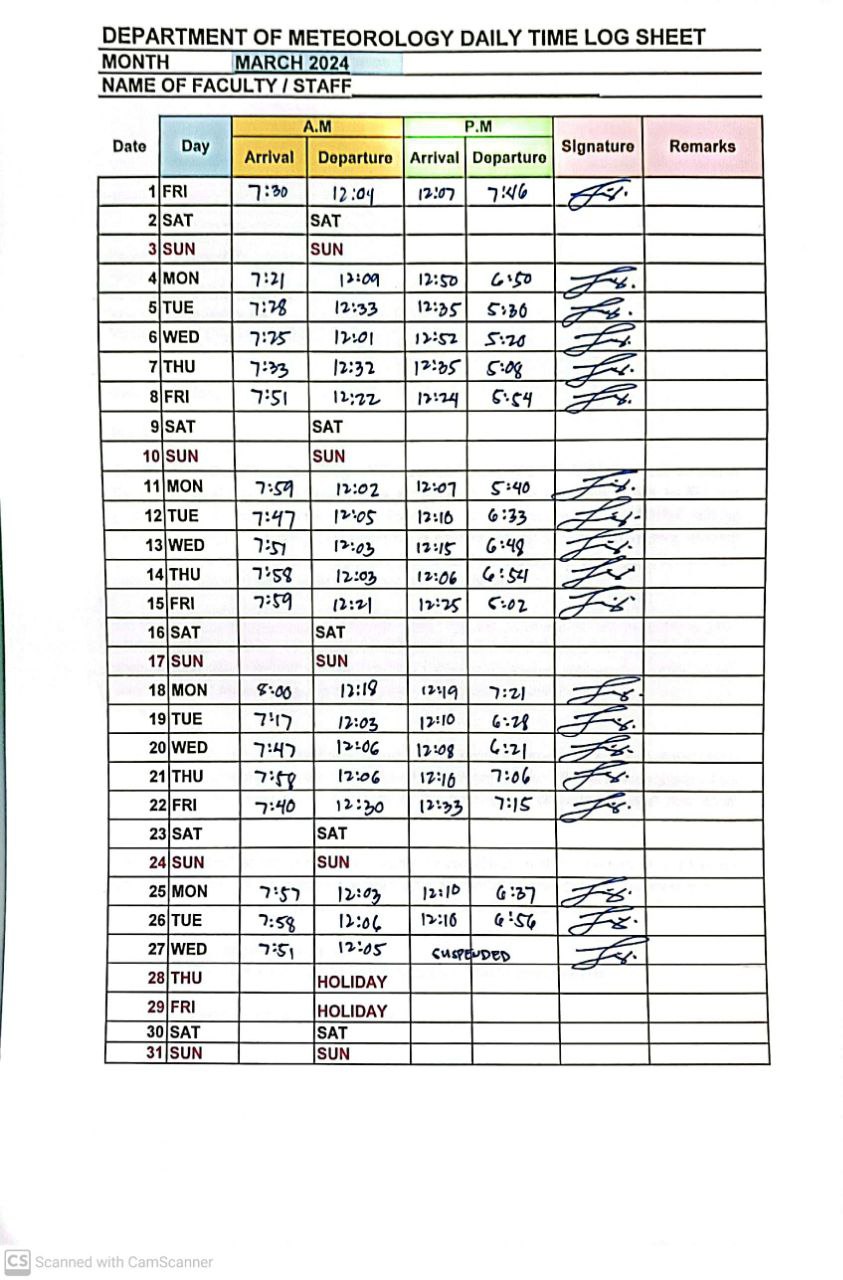 DEPARTMENT OF METEOROLOGY DAILY TIME LOG SHEET
MONTH MARCH 2024
NAME OF FACULTY / STAFF
A.M P.M
Date Day Arrival Departure Arrival Departure Signature Remarks
1 FRI 7:30 12:04 12:07 7:46
2 SAT SAT
3 SUN SUN
4 MON 7:21 12:09 12:50 6:50
5 TUE 7:28 12:33 12:35 5:30
6 WED 7:25 12:01 12:52 5:20
7 THU 7:33 12:32 12:35 5:08
8 FRI 7:51 12:22 12:24 5:54
9 SAT SAT
10 SUN SUN
11 MON 7:59 12:02 12:07 5:40
12 TUE 7:47 12:05 12:10 6:33
13 WED 7:51 12:03 12:15 6:48
14 THU 7:58 12:03 12:06 6:54
15 FRI 7:59 12:21 12:25 5:02
16 SAT SAT
17 SUN SUN
18 MON 8:00 12:18 12:19 7:21
19 TUE 7:17 12:03 12:10 6:28
20 WED 7:47 12:06 12:08 6:21
21 THU 7:58 12:06 12:10 7:06
22 FRI 7:40 12:30 12:33 7:15
23 SAT SAT
24 SUN SUN
25 MON 7:57 12:03 12:10 6:37
26 TUE 7:58 12:06 12:10 6:56
27 WED 7:51 12:05 SUSPENDED
28 THU HOLIDAY
29 FRI HOLIDAY
30 SAT SAT
31 SUN SUN
CS Scanned with CamScanner